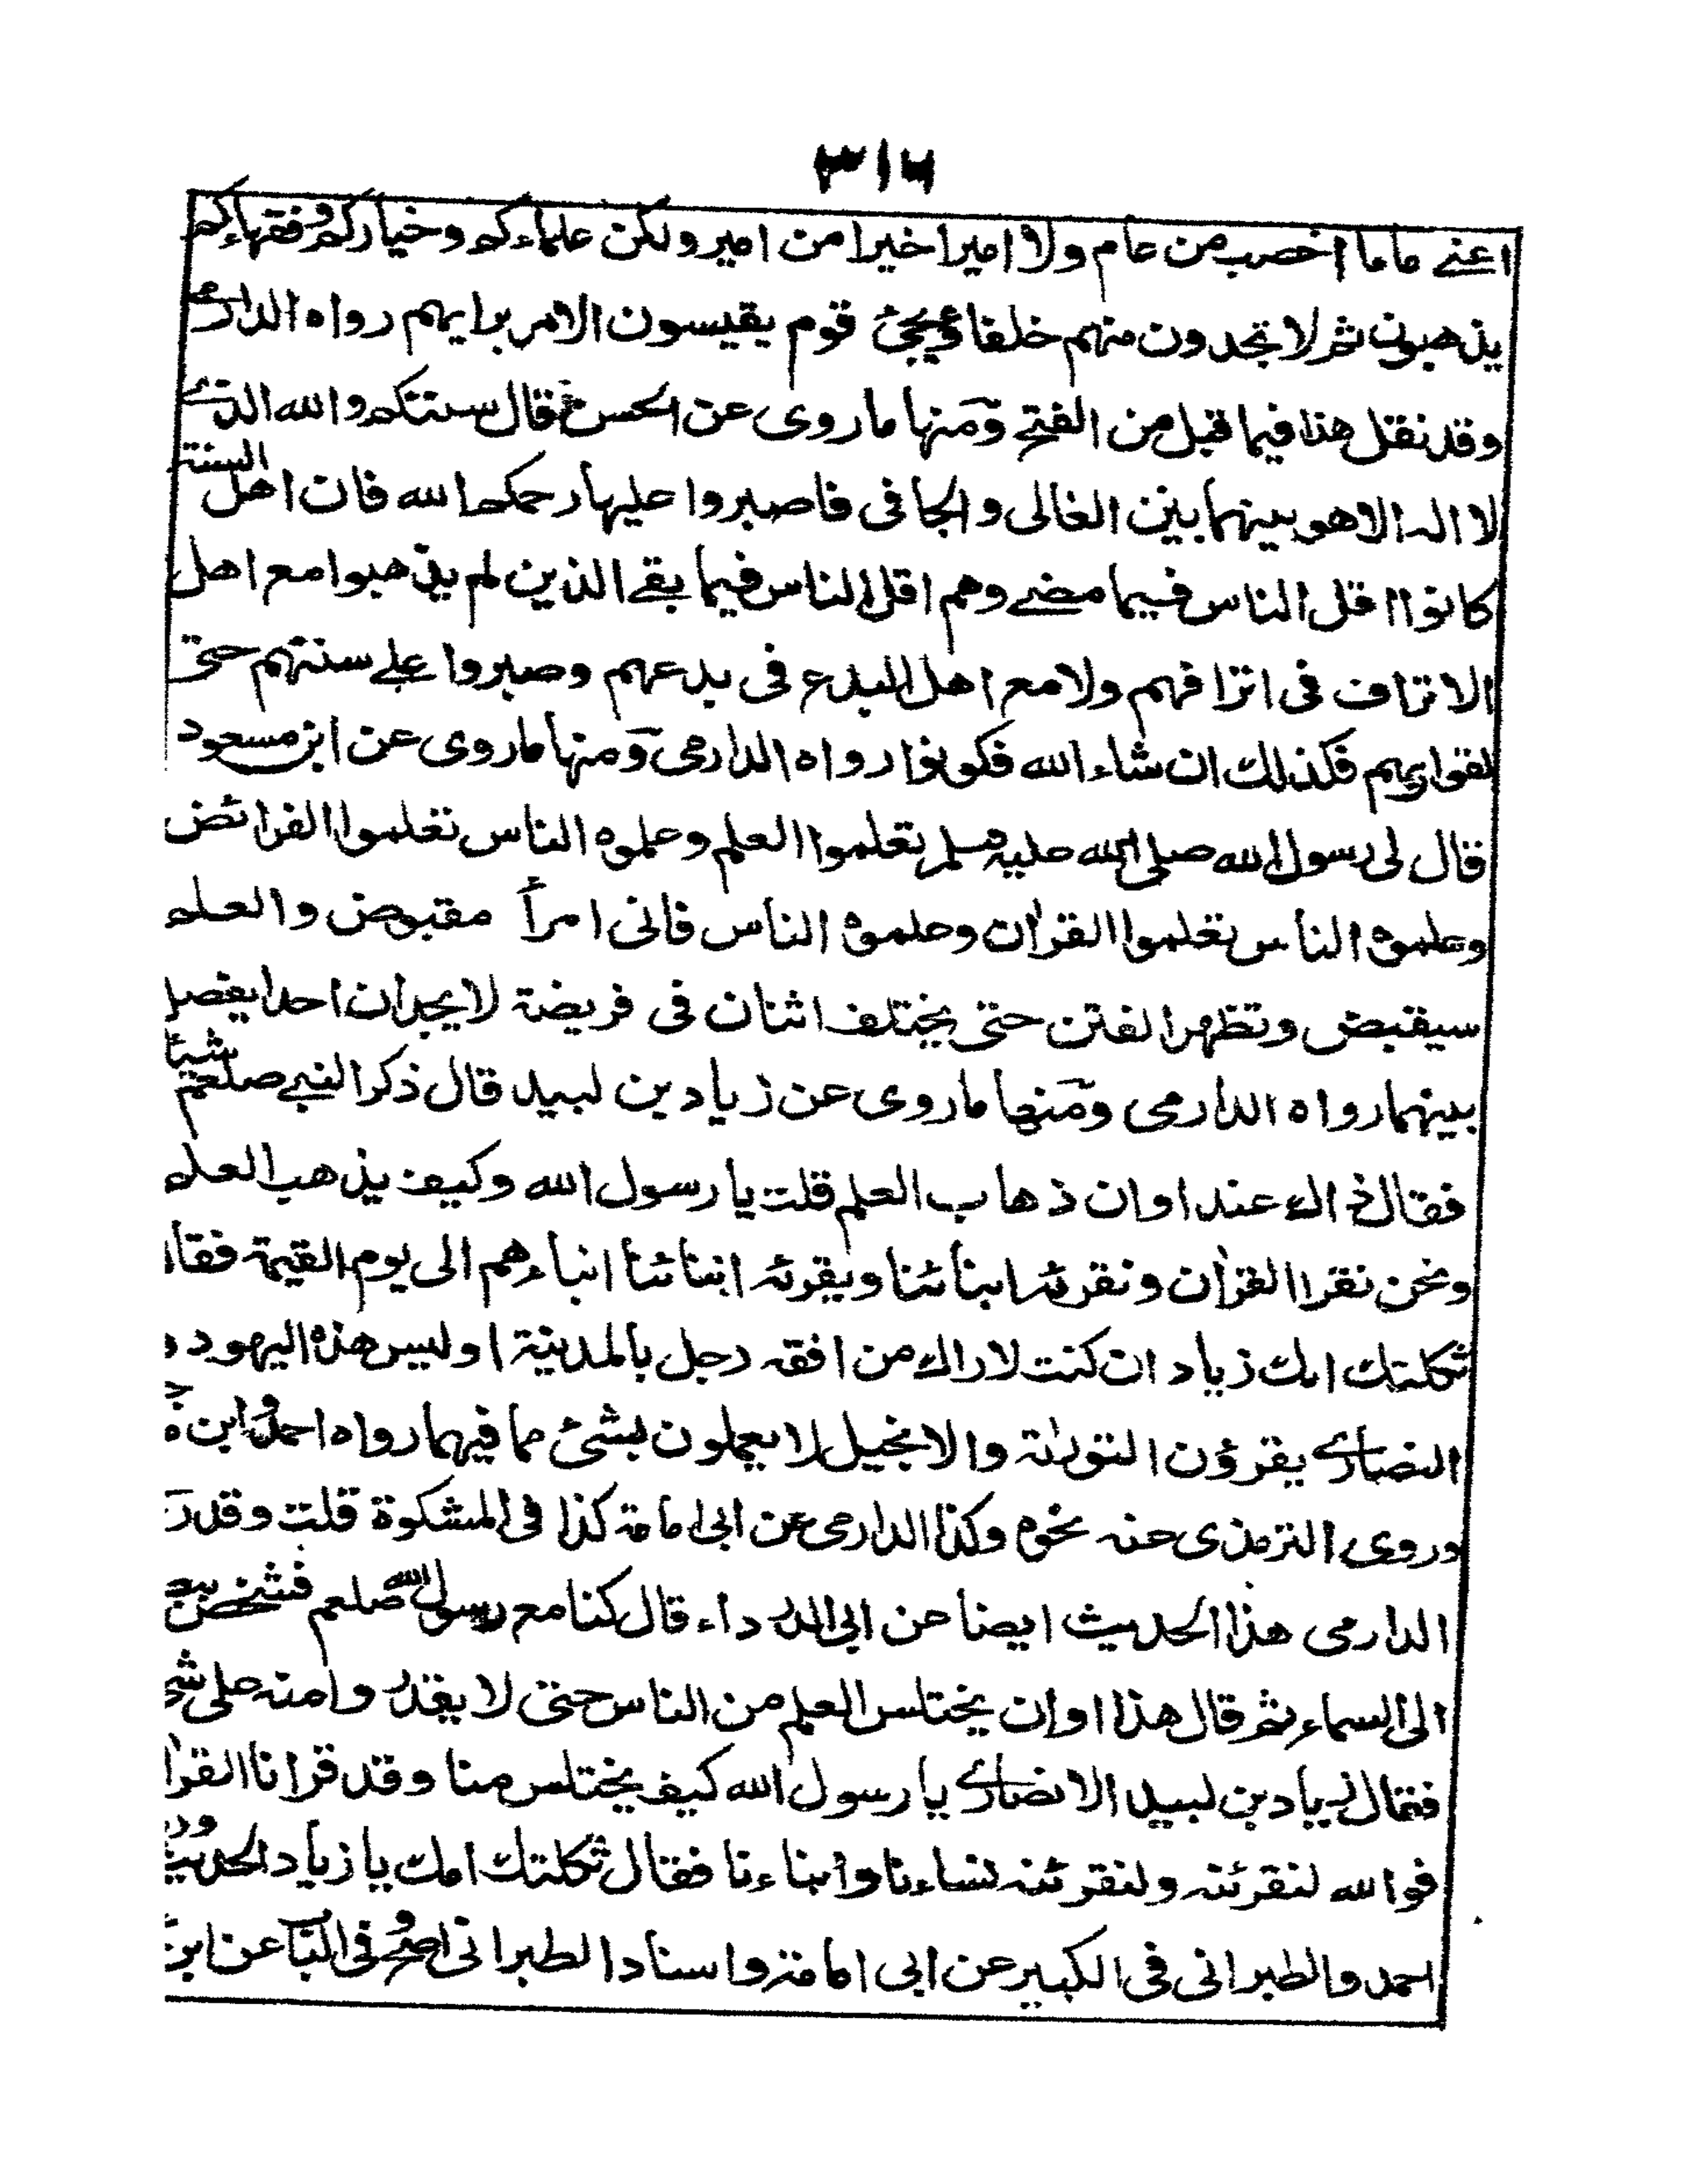 ٣١٦
اعنے عاما اخصب من عام ولا اميرا خيرا من امير ولكن علماءكم وخياركم وفقهاءكم
يذهبون ثم لا تجدون منهم خلفا ويجئ قوم يقيسون الامر برايهم رواه الدارمے
وقد نقل هذا فيما قبل من الفتح ومنها ما روى عن الحسن قال سنتكم والله الذے
لا اله الا هو بينهما بين الغالى والجافى فاصبروا عليها رحمكم الله فان اهل السنة
كانوا اقل الناس فيما مضے وهم اقل الناس فيما بقے الذين لم يذهبوا مع اهل
الاتراف فى اترافهم ولا مع اهل البدع فى بدعهم وصبروا علے سنتهم حتى
لقوا ربهم فكذلك ان شاء الله فكونوا رواه الدارمى ومنها ما روى عن ابن مسعود
قال لى رسول الله صلى الله عليه وسلم تعلموا العلم وعلموه الناس تعلموا الفرائض
وعلموه الناس تعلموا القران وعلموه الناس فانى امرأ مقبوض والعلم
سيقبض وتظهر الفتن حتى يختلف اثنان فى فريضة لا يجدان احدا يفصل
بينهما رواه الدارمى ومنها ما روى عن زياد بن لبيد قال ذكر النبے صلعم شيئا
فقال ذاك عند اوان ذهاب العلم قلت يا رسول الله وكيف يذهب العلم
ونحن نقرا القران ونقرئه ابنائنا ويقرئه ابنائنا ابناءهم الى يوم القيمة فقال
ثكلتك امك زياد ان كنت لاراك من افقه رجل بالمدينة اوليس هذه اليهود و
النصارے يقرؤن التورٰىة والانجيل لا يعملون بشئ مما فيهما رواه احمد وابن
وروى الترمذى عنه نحوه وكذا الدارمى عن ابى امامة كذا فى المشكوة قلت وقد
الدارمى هذا الحديث ايضا عن ابى الدرداء قال كنا مع رسول الله صلعم فشخص
الى السماء ثم قال هذا اوان يختلس العلم من الناس حتى لا يقدروا منه على
فقال زياد بن لبيد الانصارے يا رسول الله كيف يختلس منا وقد قرانا القرا
فوالله لنقرئنه ولنقرئنه نساءنا وابناءنا فقال ثكلتك امك يا زياد الحديث
احمد والطبرانى فى الكبير عن ابى امامة واسناد الطبرانى اصح وفى الباب عن ابن